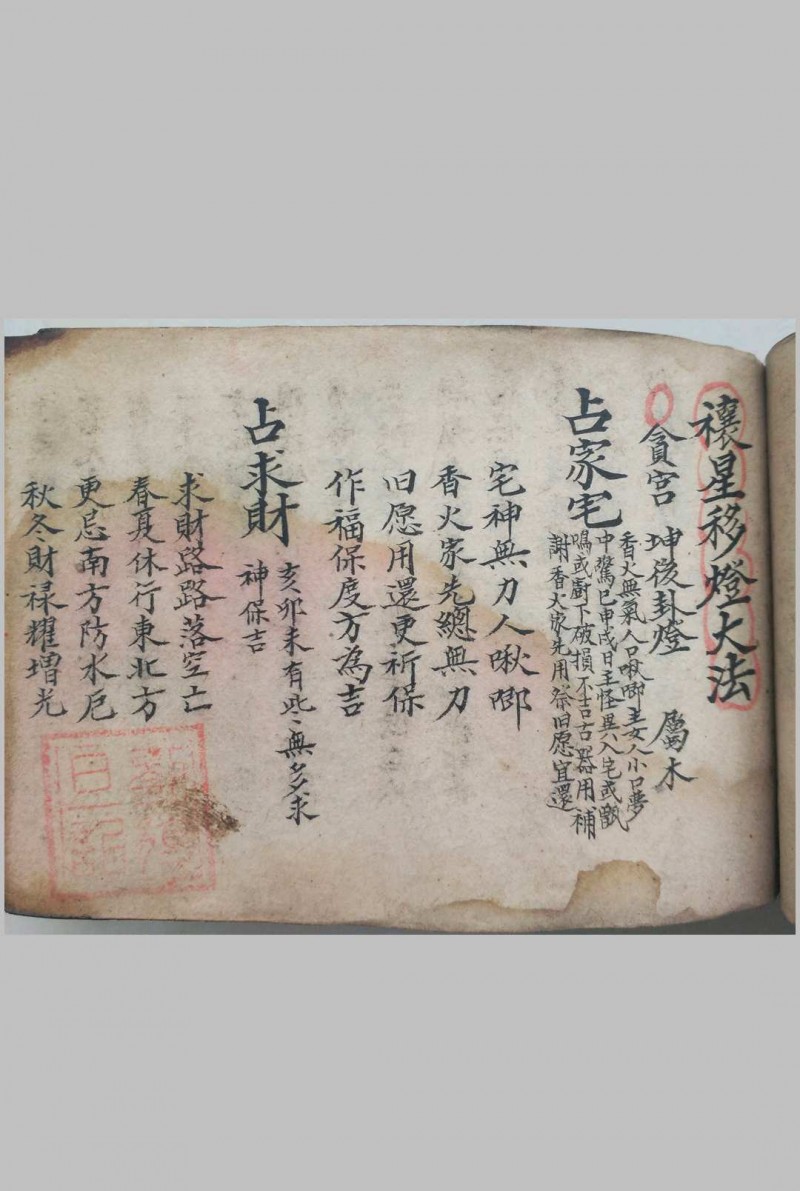 禳星移燈大法
貪宮 坤後卦燈 屬木
占家宅
香火無氣人口啾唧主女人小口夢
中驚巳申戌日主怪異入宅或甑
鳴或廚下破損不吉古器用補
謝香火家先用祭旧愿宜還
宅神無力人啾唧
香火家先總無力
旧愿用還更祈保
作福保度方為吉
占求財
亥卯未有些〻無多求
神保吉
求財路路落空亡
春夏休行東北方
更忌南方防水厄
秋冬財禄耀增光